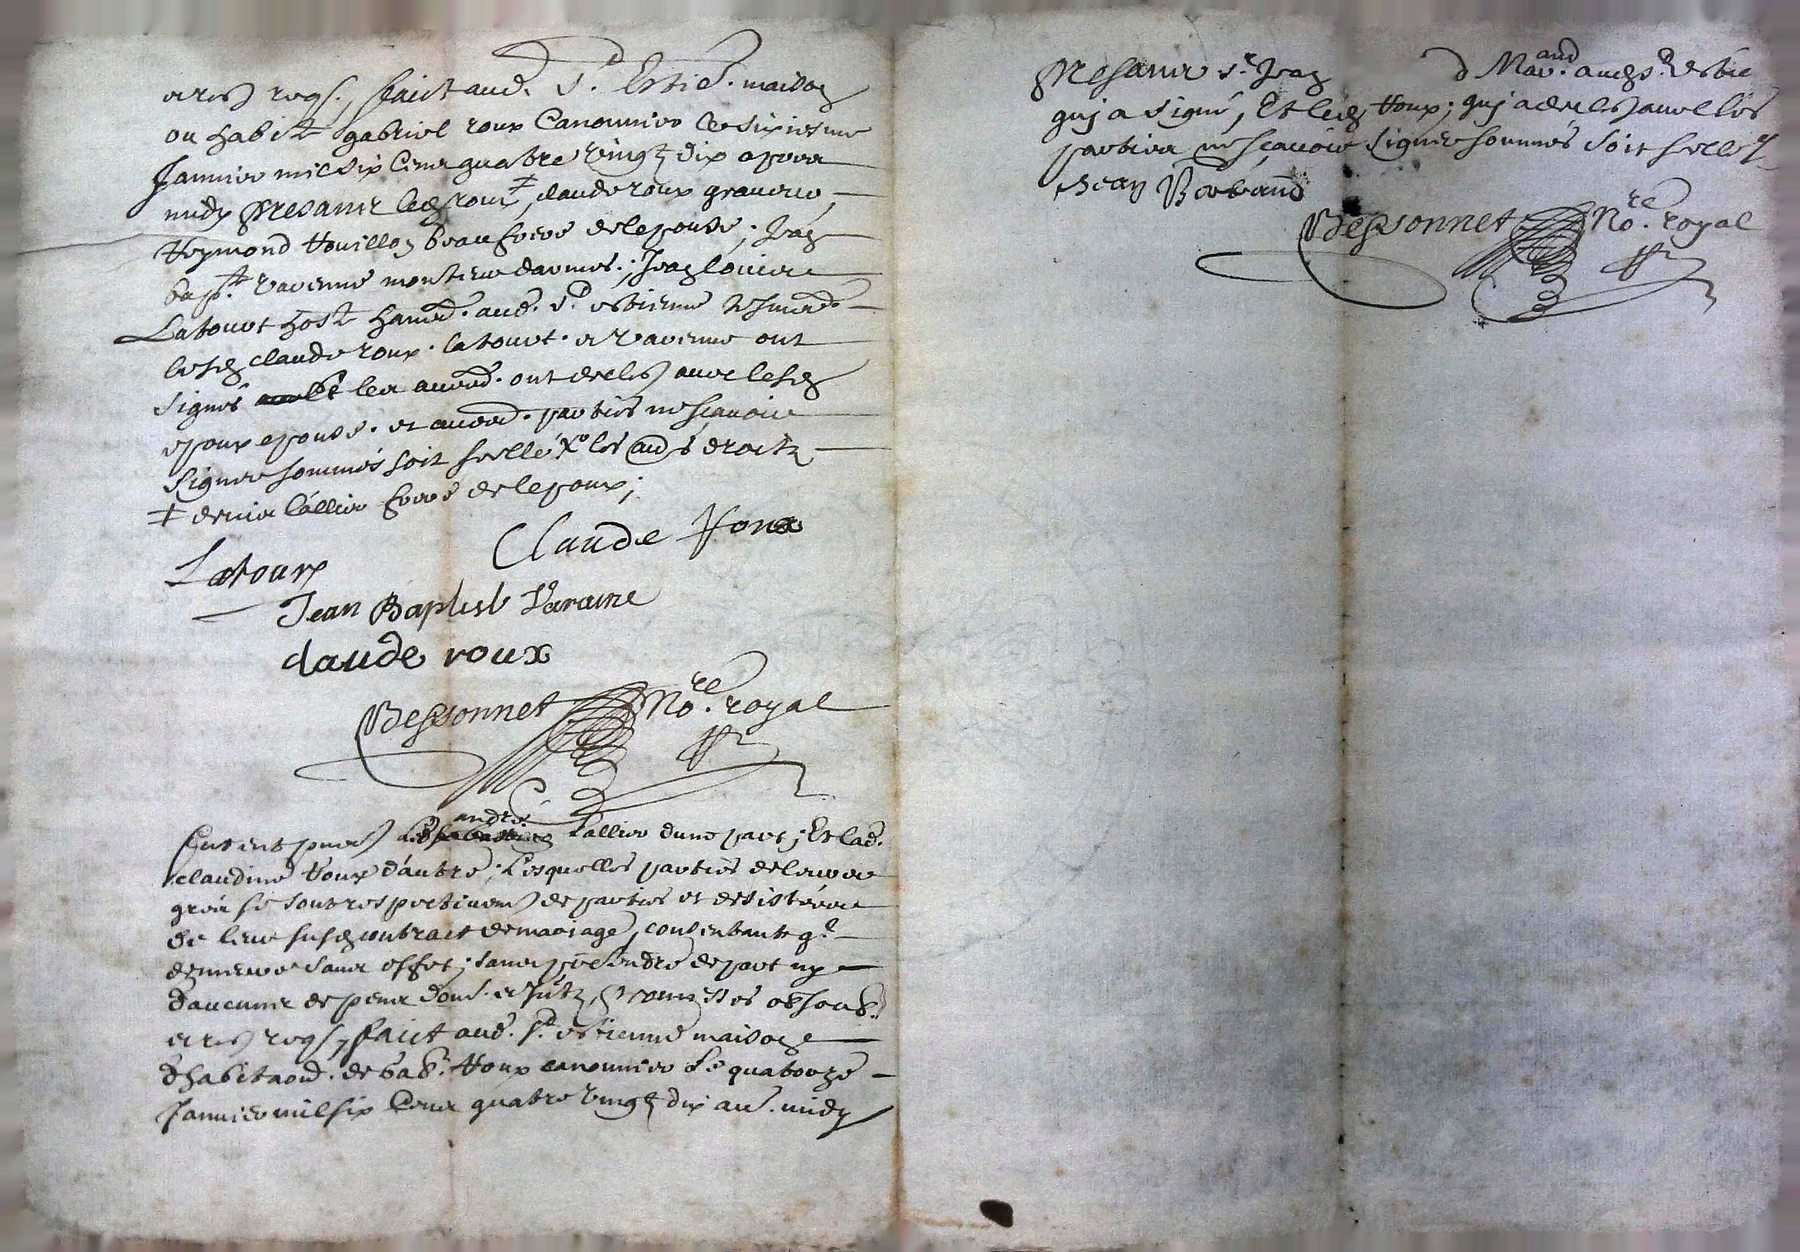 et res reqs. faict aud. St. Estie. maison
ou habite gabriel roux Canonnier le sixiesme
Janvier mil six Cens quatre vingt dix apres
midy presans led roux ‡, claude roux graveur,
Reymond Rouillon beaufrere de lepouse; Jean
bapt. varenne monteur darmes; Jean louis
Latourt host. habit. aud. St. estienne tesmoins
lesd claude roux. latourt. et varenne ont
signés les autres. ont declaré avec lesd
epoux epouse. et autres. parties ne scavoir
signer sommés soit scellé les droits
‡ denis Lallier frere de lepoux;
Claude Roux
Latourt
Jean Baptist Varaine
claude roux
Bessonnet No.re royal
furent pnts andré Lallier dune part; Et lad.
claudine Roux d'autre; Lesquelles parties de leur
gré se sont respectivem departies et desistées
de leur susd contract de mariage, consentants q.
demeure sans effet; sans pretendre de part ny
d'aucuns depens dom. et intz, promesses obsoub.
et res reqs, faict aud. St. estienne maison
d'habitaon. de gab. Roux canonnier Le quatorze
Janvier mil six Cens quatre vingt dix av. midy
presans sr. Jean Mar.and aud St. Estie
qui a signé, Et led Roux; qui a declaré avec les
parties ne scavoir signer sommés soit scellé
Jean Berbrand
Bessonnet No.re royal